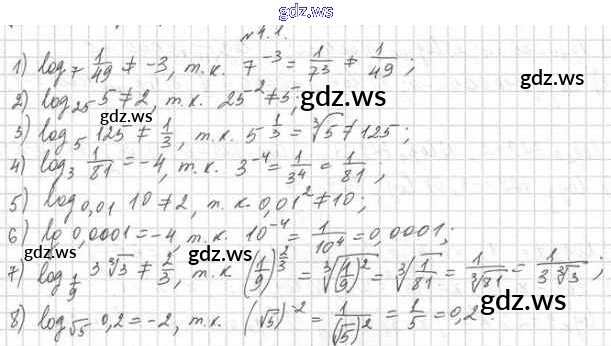 gdz.ws
№4.1.
1) log₇ 1/49 ≠ -3, т.к. 7⁻³ = 1/7³ ≠ 1/49;
2) log₂₅ 5 ≠ 2, т.к. 25⁻² ≠ 5;
gdz.ws
3) log₅ 125 ≠ 1/3, т.к. 5^(1/3) = ∛5 ≠ 125;
gdz.ws
4) log₃ 1/81 = -4, т.к. 3⁻⁴ = 1/3⁴ = 1/81;
5) log₀,₀₁ 10 ≠ 2, т.к. 0,01² ≠ 10;
gdz.ws
6) lg 0,0001 = -4, т.к. 10⁻⁴ = 1/10⁴ = 0,0001;
gdz.ws gdz.ws
7) log_(1/9) 3∛3 ≠ 2/3, т.к. (1/9)^(2/3) = ∛((1/9)²) = ∛(1/81) = 1/∛81 = 1/(3∛3);
gdz.ws
8) log_√5 0,2 = -2, т.к. (√5)⁻² = 1/(√5)² = 1/5 = 0,2